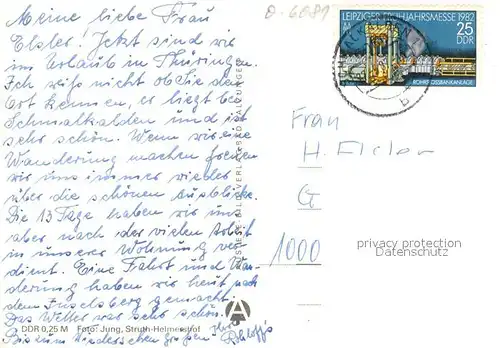 Meine liebe Frau
Elsler! Jetzt sind wir
im Urlaub in Thüringen.
Ich weiß nicht ob Sie den
Ort kennen, er liegt bei
Schmalkalden und ist
sehr schön. Wenn wir eine
Wanderung machen freuen
wir uns immer wieder
über die schönen Ausblicke.
Die 13 Tage haben wir uns
aber nach der vielen Arbeit
in unserer Wohnung ver
dient. Eine Fahrt und Wan-
derung haben wir heut nach
dem Inselsberg gemacht.
Das Wetter war sehr schön.
DDR 0,25 M Foto: Jung, Struth-Helmershof
Bis zum Wiedersehen grüßen Ihre
LEIPZIGER FRÜHJAHRSMESSE 1982
25
DDR
ROHRSTOSSBANKANLAGE
Frau
H. Elsler
G
1000
privacy protection
Datenschutz